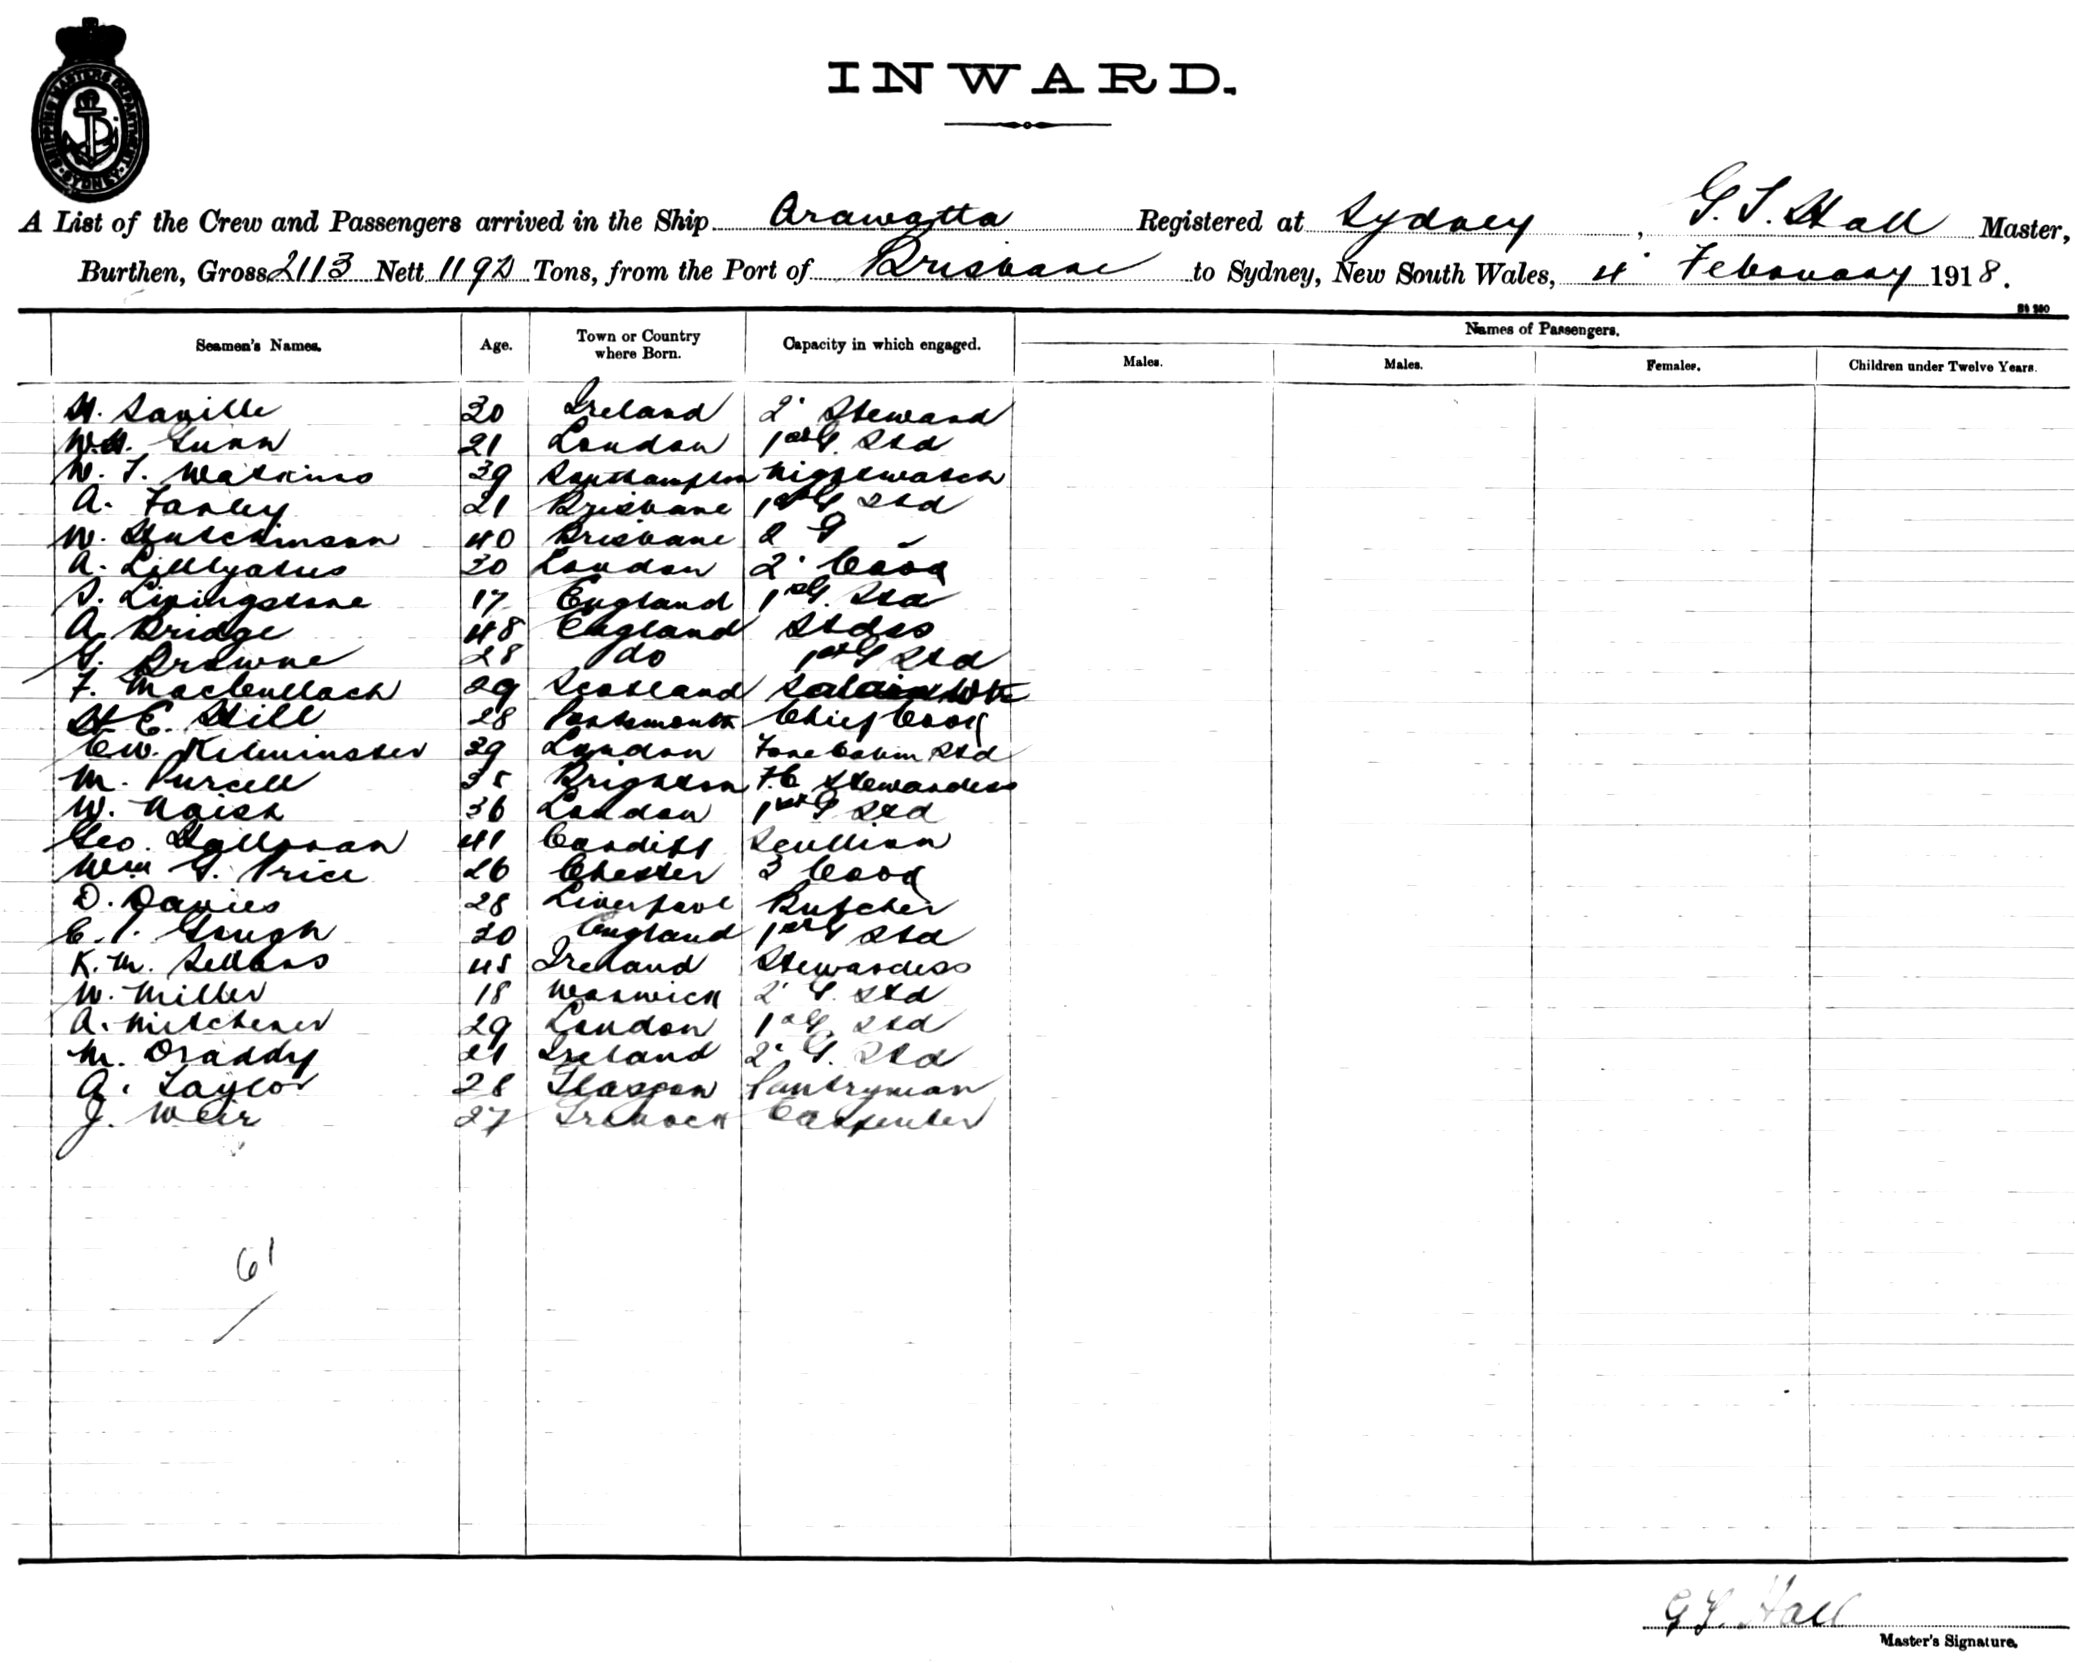 SHIPPING MASTERS DEPARTMENT SYDNEY
INWARD.
A List of the Crew and Passengers arrived in the Ship Arawatta Registered at Sydney, G. S. Hall Master,
Burthen, Gross 2113 Nett 1192 Tons, from the Port of Brisbane to Sydney, New South Wales, 4 February 1918.
Seamen's Names. Age. Town or Country where Born. Capacity in which engaged. Names of Passengers.
Males. Males. Females. Children under Twelve Years.
H. Saville 30 Ireland 2 Steward
W.H. Gunn 21 London 1st G. Std
W. T. Watkins 39 Southampton Nightwatch
A. Farley 21 Brisbane 1st G Std
W. Hutchinson 40 Brisbane 2 G
A. 30 London 2 Cook
S. Livingstone 17 England 1st G. Std
A. Bridge 48 England Stdss
G. Browne 28 do 1st G Std
F. MacCullach 29 Scotland
H E. Hill 28 Portsmouth Chief Cook
C W. Kilminster 39 London Fore Cabin Std
M. Purcell 35 Brighton F.C Stewardess
W. Naish 36 London 1st G Std
Geo. 41 Cardiff Scullion
Wm G. Price 26 Chester 3 Cook
D. Davies 28 Liverpool Butcher
E. P. Gough 20 England 1st G Std
K. M. Sellars 45 Ireland Stewardess
W. Miller 18 Warwick 2 G. Std
A. Mitchener 29 London 1st G Std
M. Draddy 21 Ireland 2 G. Std
A. Taylor 28 Glasgow Pantryman
J. Weir 27 Carpenter
61
G S. Hall
Master's Signature.